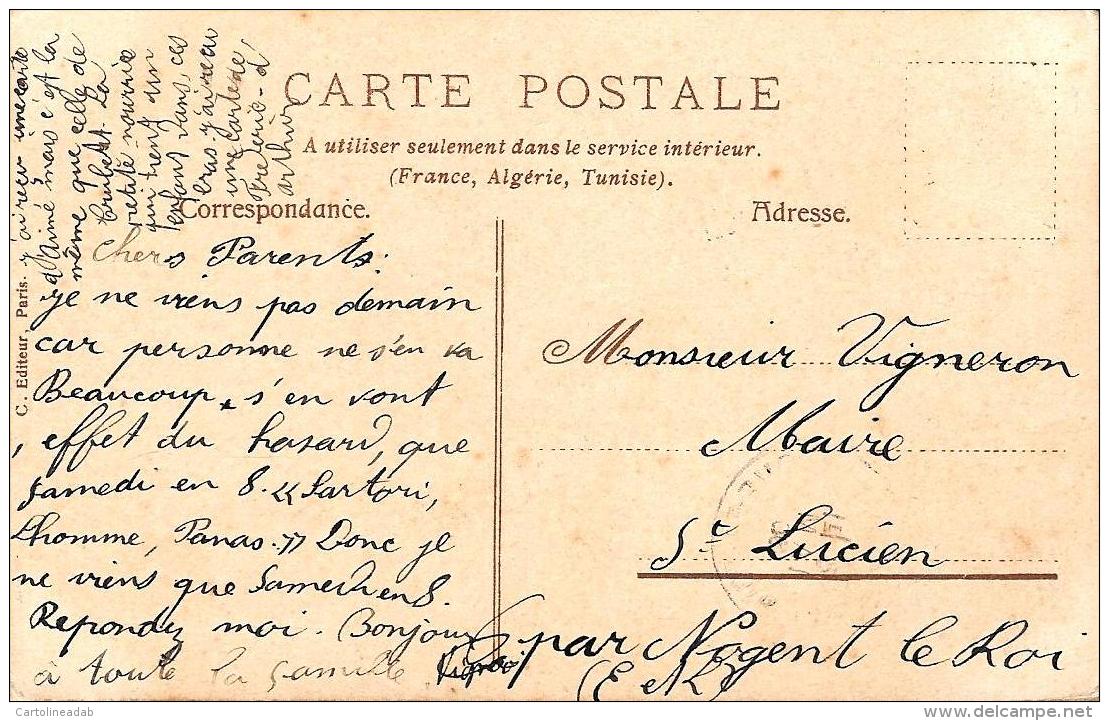 CARTE POSTALE
A utiliser seulement dans le service intérieur.
(France, Algérie, Tunisie).
Correspondance.
Adresse.
C. Editeur, Paris.
j'ai reçu une carte
d'Aimé mais c'est la
même que celle de
petite nourrice
qui tient un
enfant dans ces
bras. j'ai reçu
une carte de
Frédéric - d
arthur
Chers Parents.
je ne viens pas demain
car personne ne s'en va
Beaucoup s'en vont
, effet du hasard, que
samedi en 8. « Sartori,
Lhomme, Panas. » Donc je
ne viens que Samedi en 8.
Repondez moi. Bonjour
à toute la famille
Monsieur Vigneron
Maire
St Lucien
par Nogent le Roi
(E et L)
Cartolineadab
delcampe.net